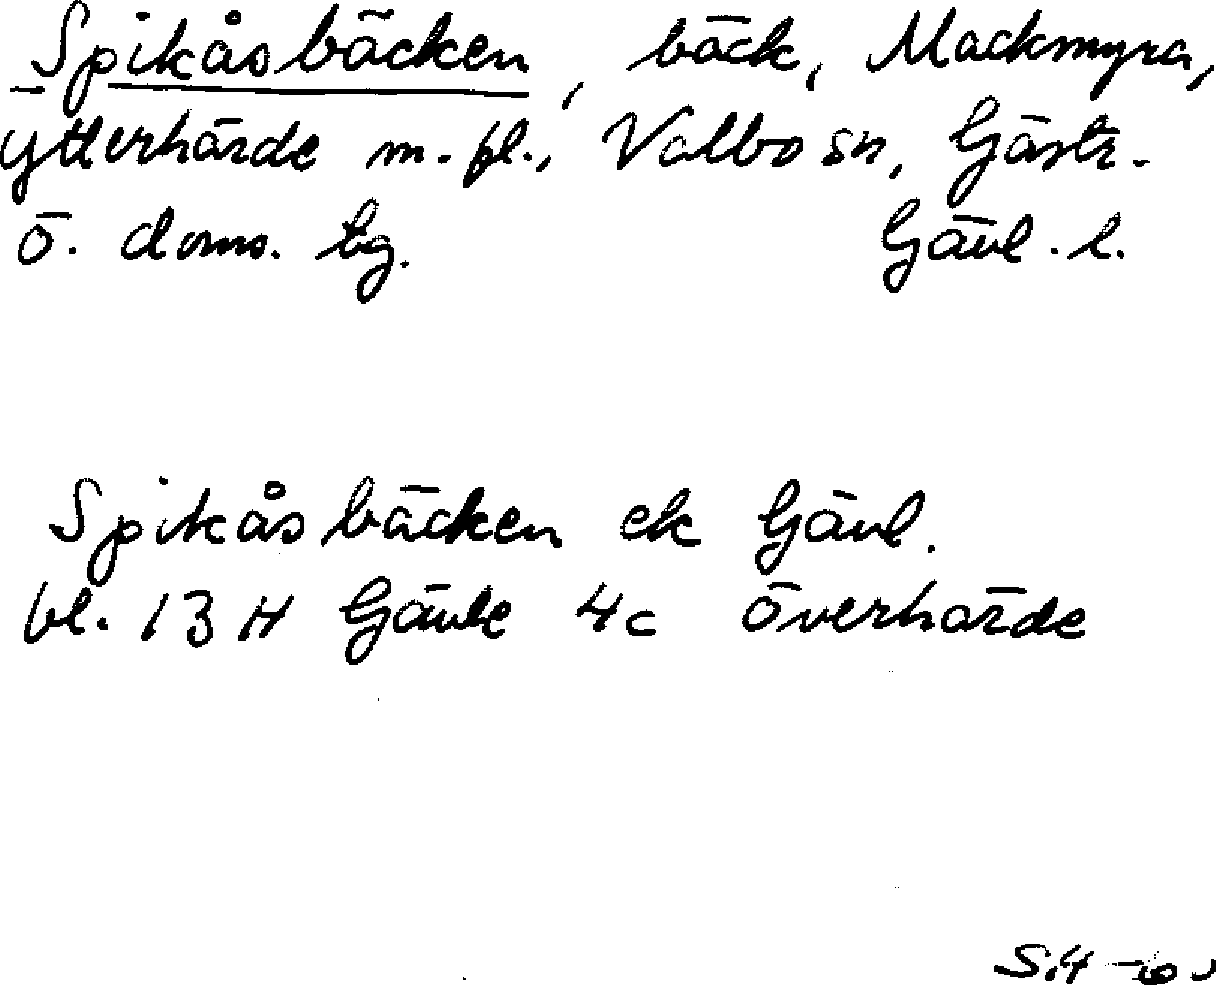 Spikåsbäcken, bäck, Mackmyra,
Ytterhärde m. fl., Valbo sn, Gästr.
ö. doms. tg. Gävl. l.
Spikåsbäcken ek Gävl.
bl. 13 H Gävle 4c Överhärde